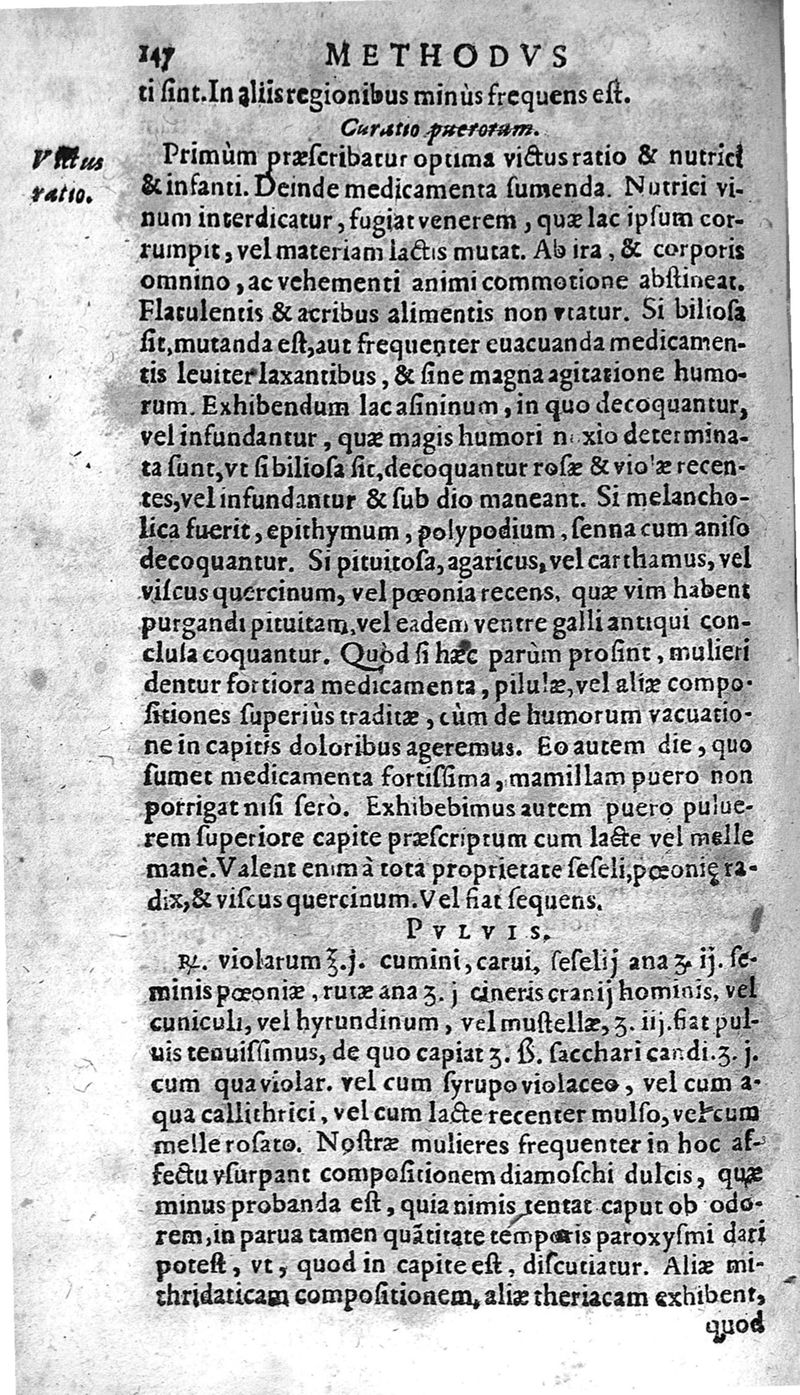 147 METHODVS
ti ſint. In aliis regionibus minùs frequens eſt.
Curatio puerorum.
Victus
ratio.
Primùm præſcribatur optima victus ratio & nutrici
& infanti. Deinde medicamenta ſumenda. Nutrici vi-
num interdicatur, fugiat venerem, quæ lac ipſum cor-
rumpit, vel materiam lactis mutat. Ab ira, & corporis
omnino, ac vehementi animi commotione abſtineat.
Flatulentis & acribus alimentis non vtatur. Si bilioſa
ſit, mutanda eſt, aut frequenter euacuanda medicamen-
tis leuiter laxantibus, & ſine magna agitatione humo-
rum. Exhibendum lac aſininum, in quo decoquantur,
vel infundantur, quæ magis humori noxio determina-
ta ſunt, vt ſi bilioſa ſit, decoquantur roſæ & violæ recen-
tes, vel infundantur & ſub dio maneant. Si melancho-
lica fuerit, epithymum, polypodium, ſenna cum aniſo
decoquantur. Si pituitoſa, agaricus, vel carthamus, vel
viſcus quercinum, vel pœonia recens, quæ vim habent
purgandi pituitam, vel eadem ventre galli antiqui con-
cluſa coquantur. Quòd ſi hæc parùm proſint, mulieri
dentur fortiora medicamenta, pilulæ, vel aliæ compo-
ſitiones ſuperiùs traditæ, cùm de humorum vacuatio-
ne in capitis doloribus ageremus. Eo autem die, quo
ſumet medicamenta fortiſſima, mamillam puero non
porrigat niſi ſerò. Exhibebimus autem puero pulue-
rem ſuperiore capite præſcriptum cum lacte vel melle
manè. Valent enim à tota proprietate ſeſeli, pœonię ra-
dix, & viſcus quercinum. Vel fiat ſequens.
PVLVIS.
℞. violarum ℥.j. cumini, carui, ſeſelij ana ʒ. ij. ſe-
minis pœoniæ, rutæ ana ʒ. j cineris cranij hominis, vel
cuniculi, vel hyrundinum, vel muſtellæ, ʒ. iij. fiat pul-
uis tenuiſſimus, de quo capiat ʒ. ß. ſacchari candi. ʒ. j.
cum qua violar. vel cum ſyrupo violaceo, vel cum a-
qua callithrici, vel cum lacte recenter mulſo, vel cum
melle roſato. Noſtræ mulieres frequenter in hoc af-
fectu vſurpant compoſitionem diamoſchi dulcis, quæ
minus probanda eſt, quia nimis tentat caput ob odo-
rem, in parua tamen quãtitate temporis paroxyſmi dari
poteſt, vt, quod in capite eſt, diſcutiatur. Aliæ mi-
thridaticam compoſitionem, aliæ theriacam exhibent,
quod